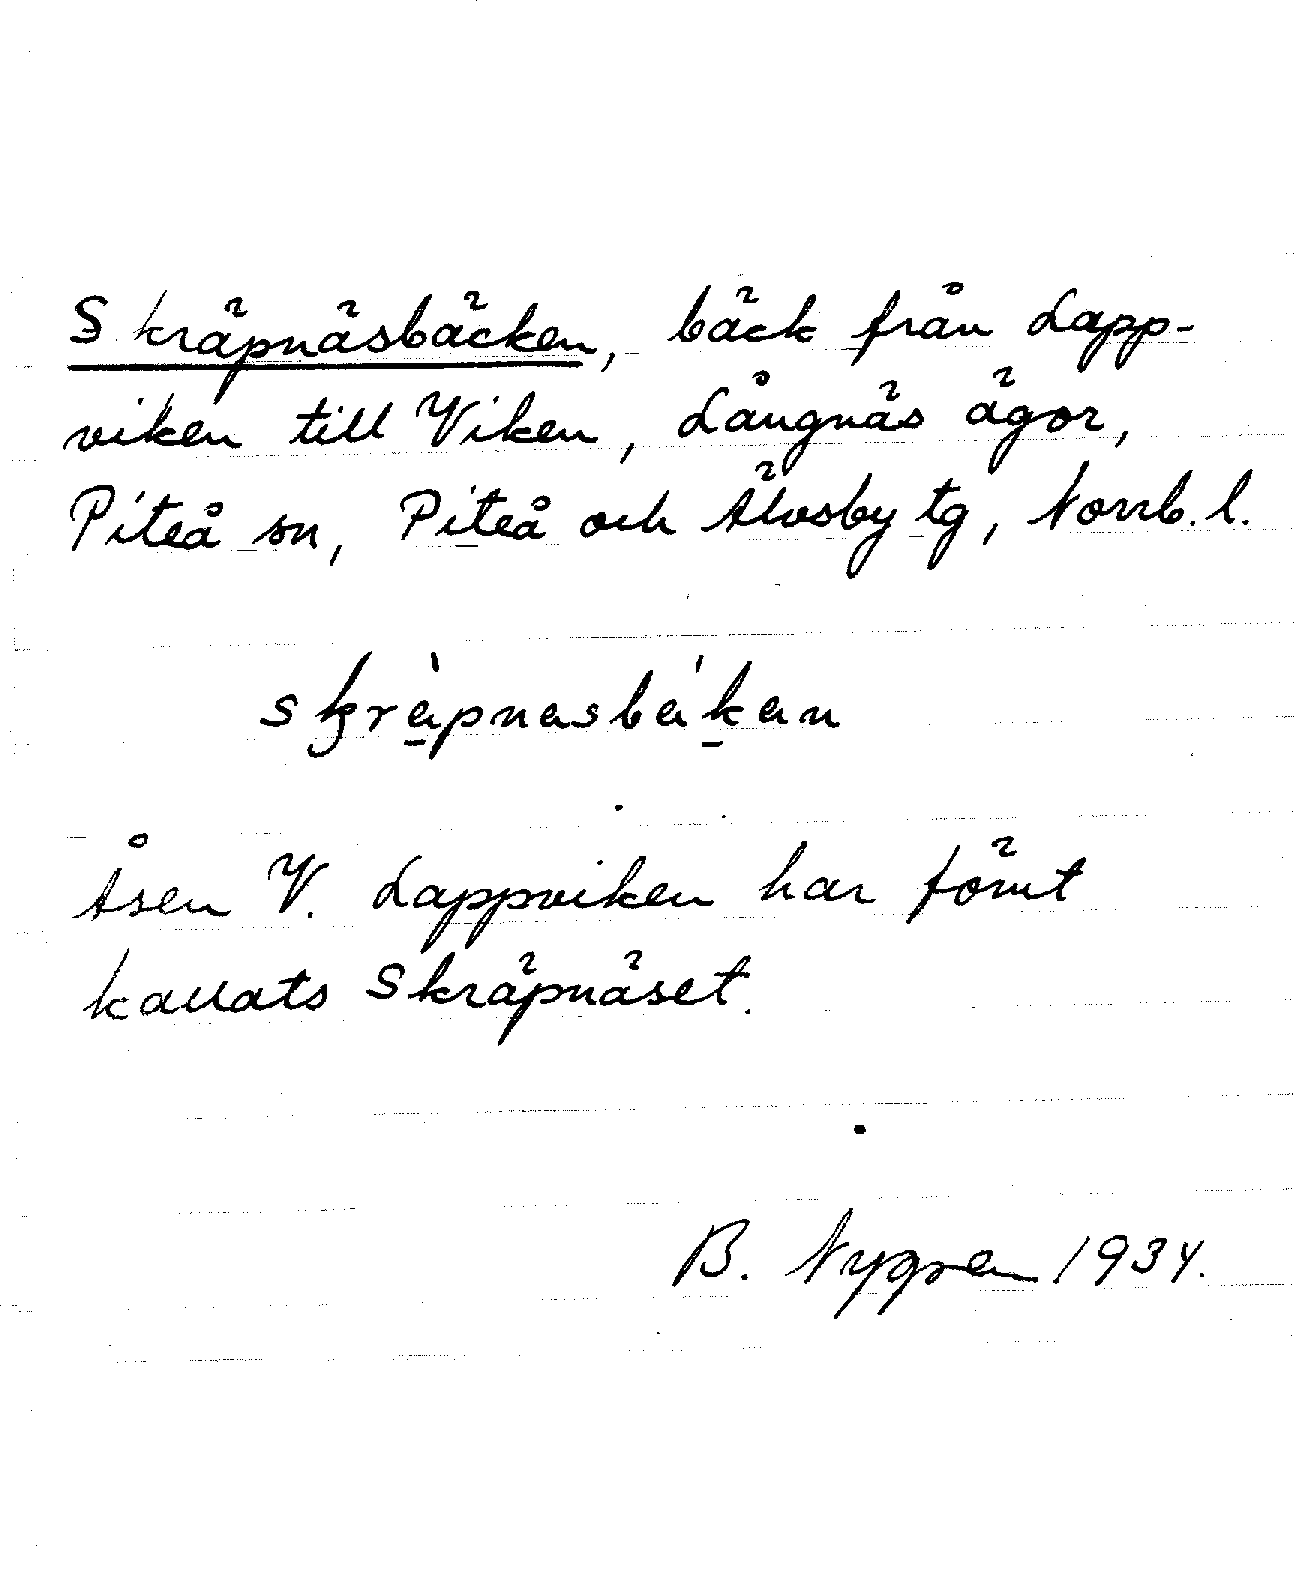 Skräpnäsbäcken, bäck från Lapp-
viken till Viken, Långnäs ägor,
Piteå sn, Piteå och Älvsby tg, Norrb. l.
skràpnasbákan
Åsen V. Lappviken har förut
kallats Skräpnäset.
B. Nygren 1934.